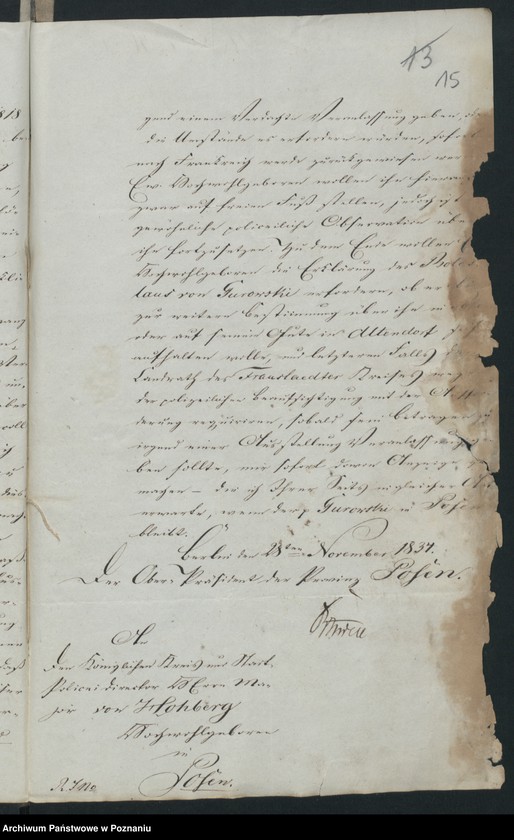 13
15
gend einem Verdachte Veranlassung geben, od
die Umstände es erfordern würden, sofort
nach Frankreich werde zurückgewiesen wer
Ew. Hochwohlgeboren wollen ihn hiernach
zwar auf freien Fuß stellen, jedoch die
gewöhnliche polizeiliche Observation über
ihn fortzusetzen. Zu dem Ende wollen
Hochwohlgeboren die Erklärung des Boles
laus von Gurowski erfordern, ob er
zur weitern Bestimmung über ihn in
oder auf seinem Gute in Altendorf
aufhalten wolle, und letzteren Falls den
Landrath des Fraustaedter Kreises weg
der polizeilichen Beaufsichtigung mit der
derung requiriren, sobald sein Betragen zu
irgend einer Ausstellung Veranlassung ge
ben sollte, mir sofort davon Anzeige zu
machen – die ich Ihrer Seits in gleicher Art
erwarte, wenn der p Gurowski in Pose
bleibt.
Berlin den 28ten November 1834.
Der Ober-Präsident der Provinz Posen.
An
den Königlichen Kreis und Stadt-
Polizei Director Herrn Ma-
jor von Hohberg
Hochwohlgeboren
in
Posen.
Archiwum Państwowe w Poznaniu